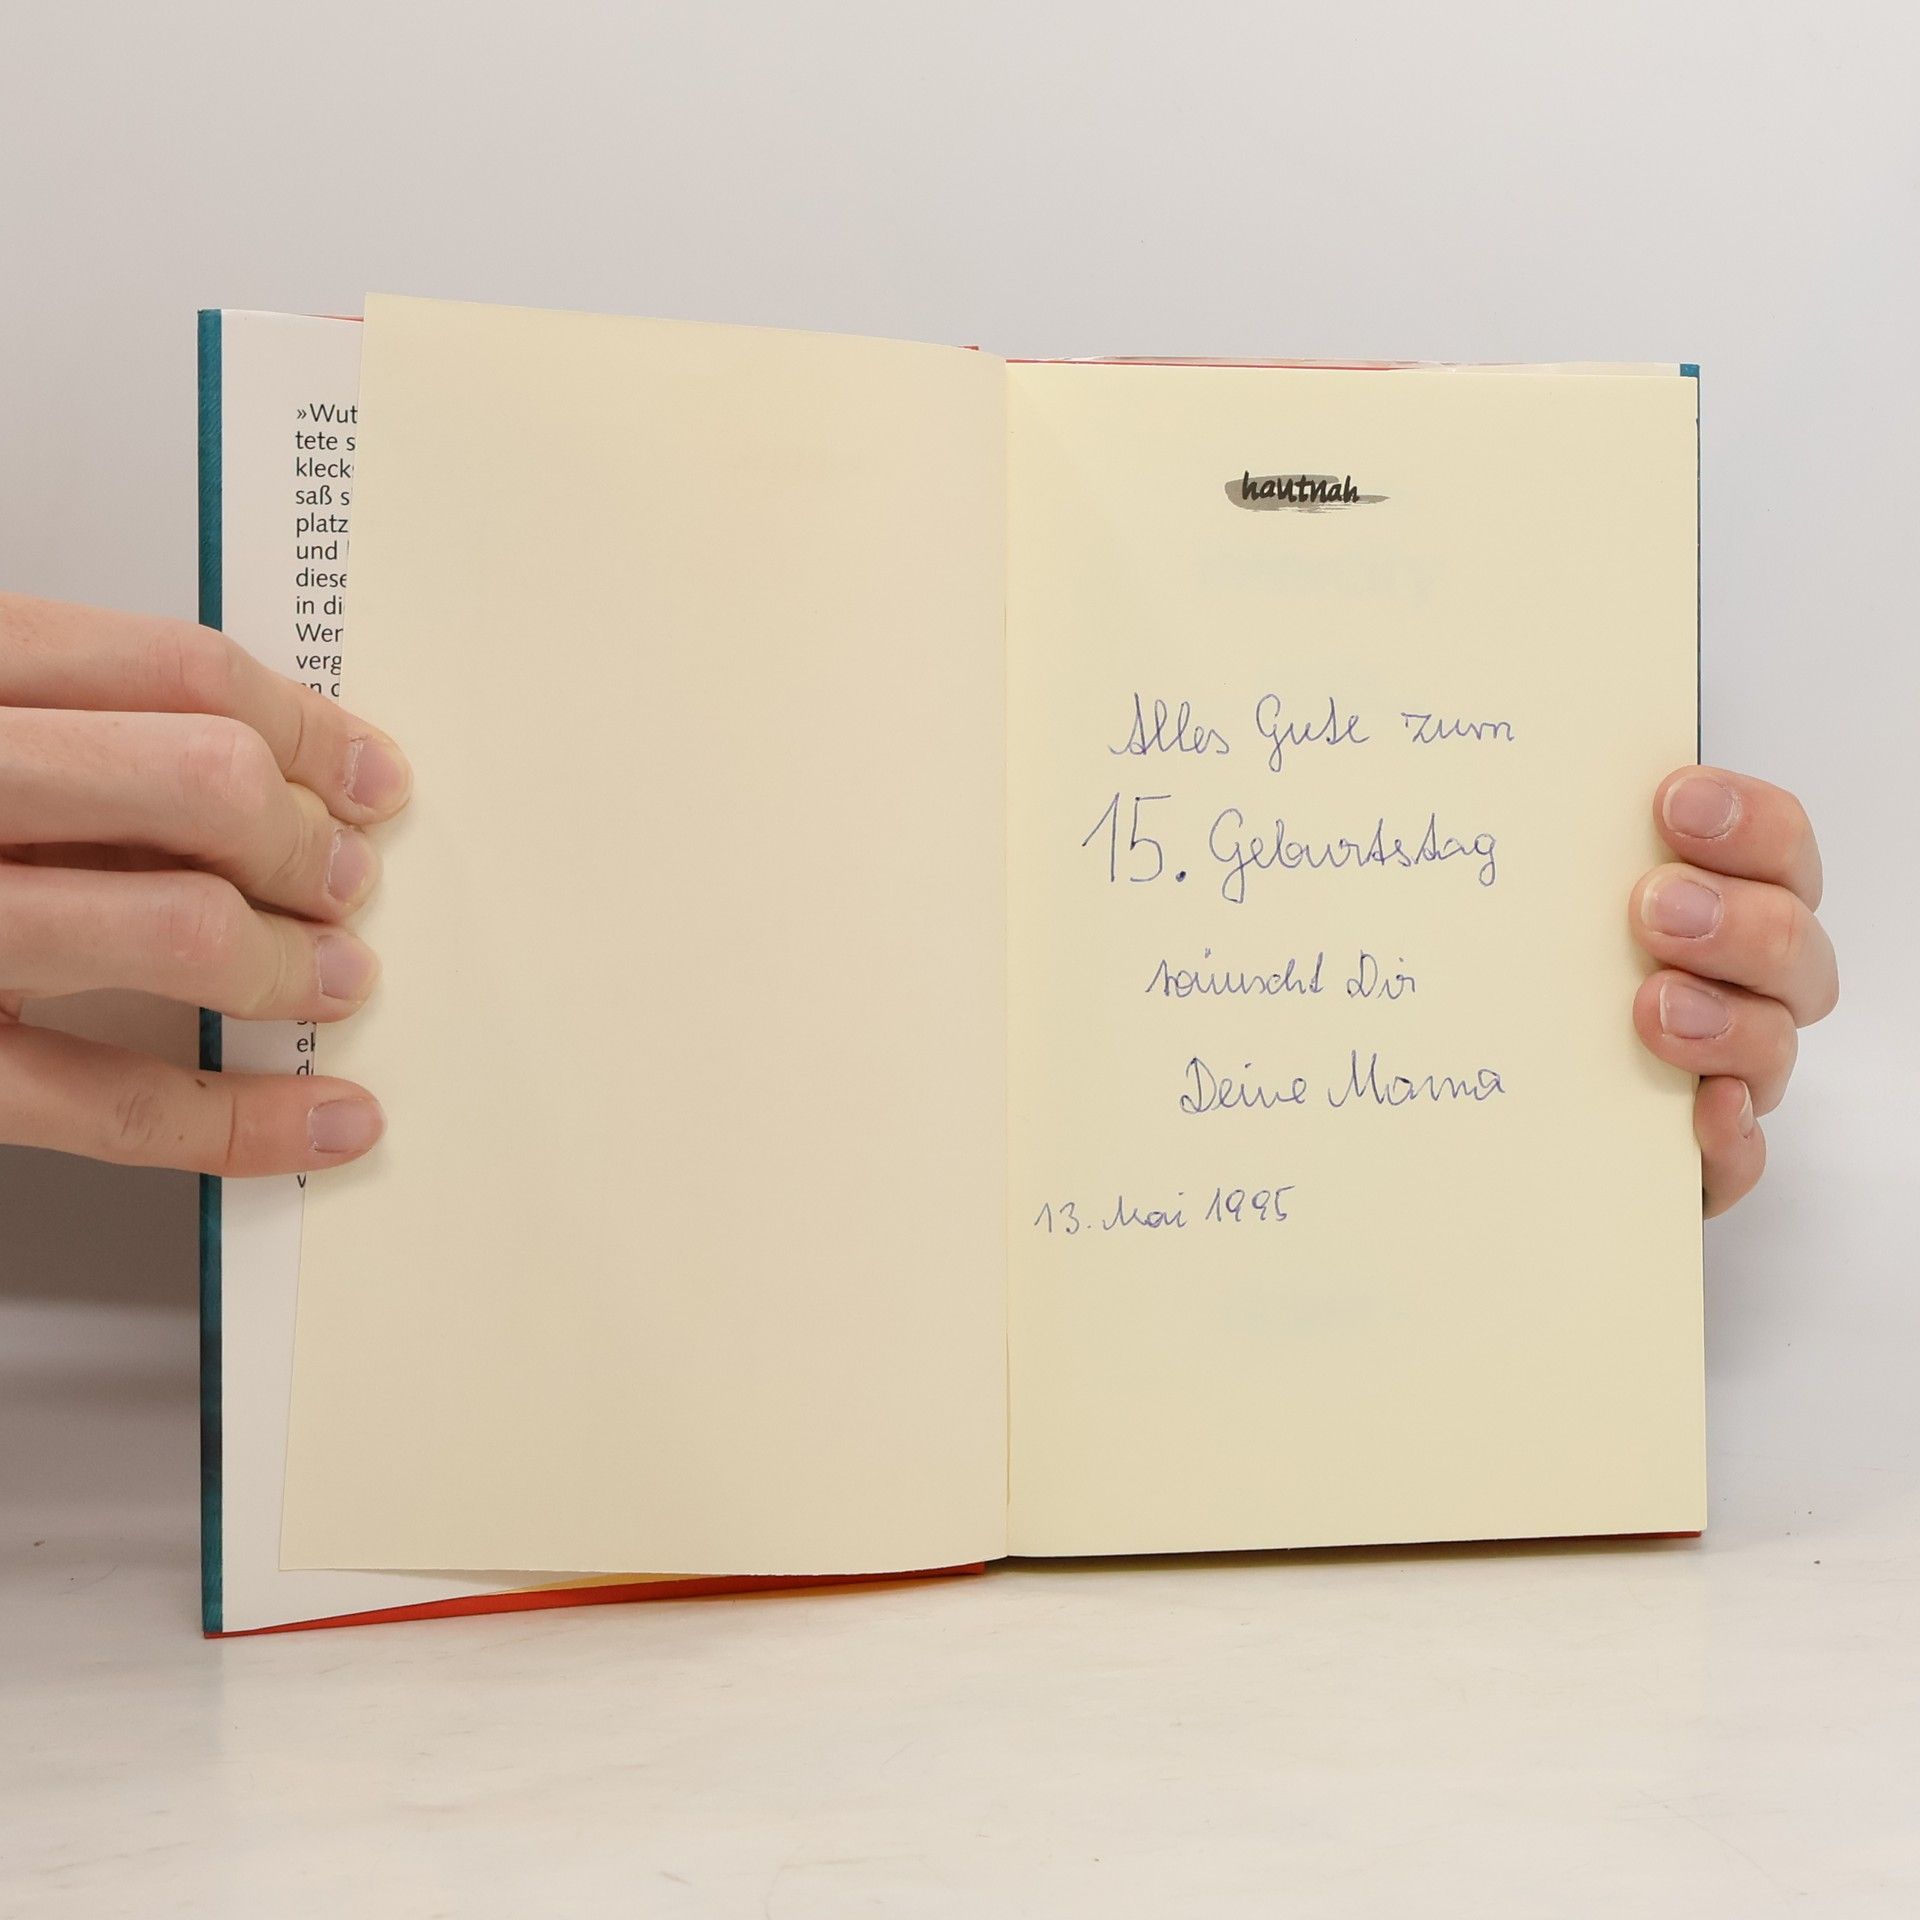 »Wut
tete s
kleck
saß s
platz
und
diese
in di
Wer
verg
hautnah
Alles Gute zum
15. Geburtstag
wünscht Dir
Deine Mama
13. Mai 1995